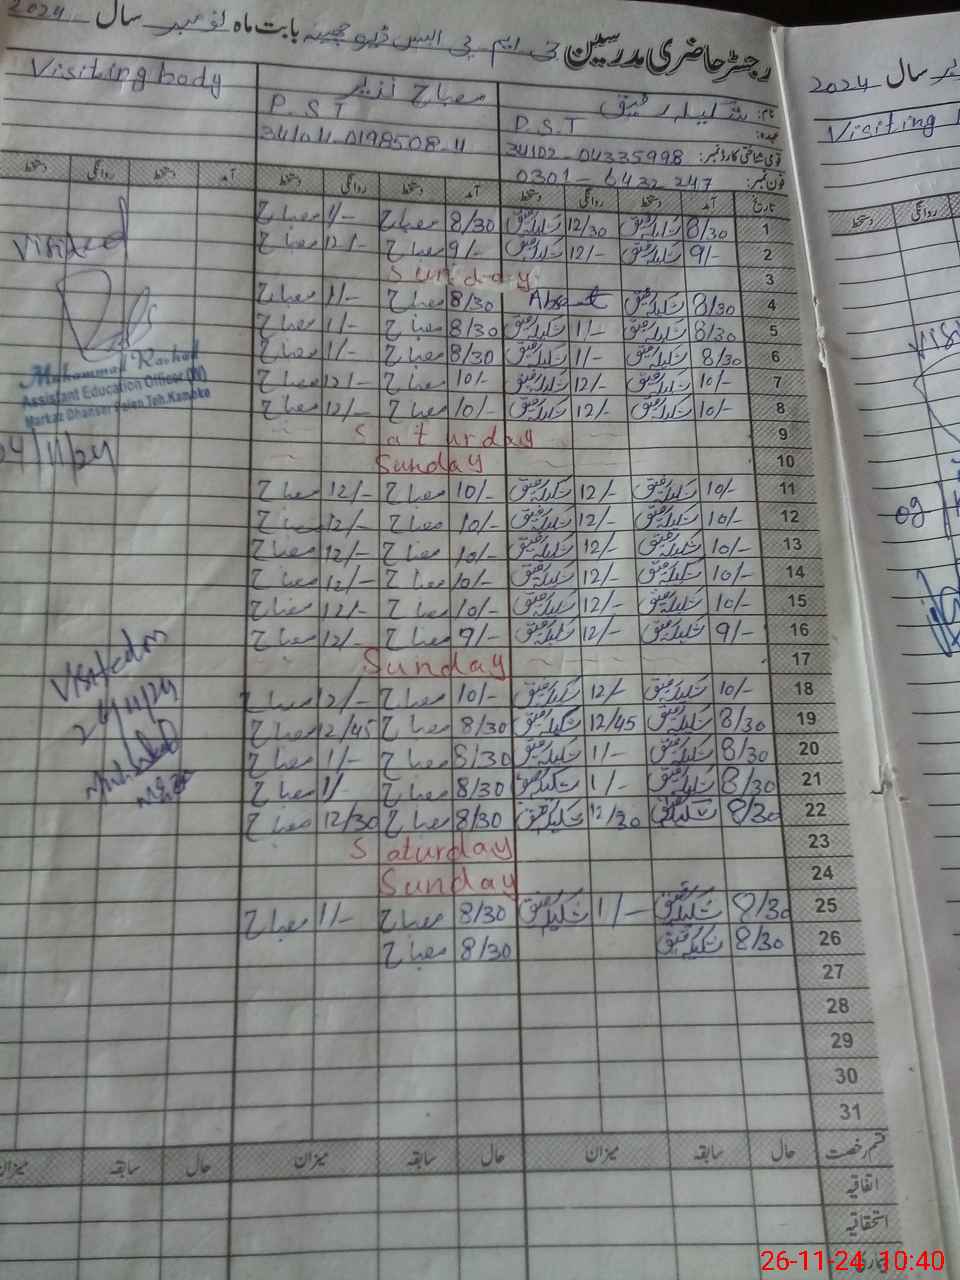 رجسٹر حاضری مدرسین جی ایم پی ایس ڈیو جینہ بابت ماہ نومبر سال 2024
نام: شکیلہ رفیق مصباح نزیر Visiting body
عہدہ: P.S.T P.S.T
قومی شناختی کارڈ نمبر: 34102-04335998 34104-0198508-4
فون نمبر: 0301-6432247
تاریخ آمد دستخط روانگی دستخط آمد دستخط روانگی دستخط آمد دستخط روانگی دستخط
1 8/30 شکیلہ رفیق 12/30 شکیلہ رفیق 8/30 مصباح 1/- مصباح
2 9/- شکیلہ رفیق 12/- شکیلہ رفیق 9/- مصباح 12/- مصباح
3 Sunday
4 8/30 شکیلہ رفیق Absent 8/30 مصباح 1/- مصباح
5 8/30 شکیلہ رفیق 1/- شکیلہ رفیق 8/30 مصباح 1/- مصباح
6 8/30 شکیلہ رفیق 1/- شکیلہ رفیق 8/30 مصباح 1/- مصباح
7 10/- شکیلہ رفیق 12/- شکیلہ رفیق 10/- مصباح 12/- مصباح
8 10/- شکیلہ رفیق 12/- شکیلہ رفیق 10/- مصباح 12/- مصباح
9 Saturday
10 Sunday
11 10/- شکیلہ رفیق 12/- شکیلہ رفیق 10/- مصباح 12/- مصباح
12 10/- شکیلہ رفیق 12/- شکیلہ رفیق 10/- مصباح 12/- مصباح
13 10/- شکیلہ رفیق 12/- شکیلہ رفیق 10/- مصباح 12/- مصباح
14 10/- شکیلہ رفیق 12/- شکیلہ رفیق 10/- مصباح 12/- مصباح
15 10/- شکیلہ رفیق 12/- شکیلہ رفیق 10/- مصباح 12/- مصباح
16 9/- شکیلہ رفیق 12/- شکیلہ رفیق 9/- مصباح 12/- مصباح
17 Sunday
18 10/- شکیلہ رفیق 12/- شکیلہ رفیق 10/- مصباح 12/- مصباح
19 8/30 شکیلہ رفیق 12/45 شکیلہ رفیق 8/30 مصباح 12/45 مصباح
20 8/30 شکیلہ رفیق 1/- شکیلہ رفیق 8/30 مصباح 1/- مصباح
21 8/30 شکیلہ رفیق 1/- شکیلہ رفیق 8/30 مصباح 1/- مصباح
22 8/30 شکیلہ رفیق 12/30 شکیلہ رفیق 8/30 مصباح 12/30 مصباح
23 Saturday
24 Sunday
25 8/30 شکیلہ رفیق 1/- شکیلہ رفیق 8/30 مصباح 1/- مصباح
26 8/30 شکیلہ رفیق 8/30 مصباح
27
28
29
30
31
قسم رخصت حال سابقہ میزان حال سابقہ میزان حال سابقہ میزان
اتفاقیہ
استحقاقیہ
Visited
Muhammad Rashad
Assistant Education Officer (W)
Markaz Dhansar Paien Teh.Kamoke
24/11/24
Visited on
سال 2024
Visiting
روانگی دستخط
26-11-24 10:40